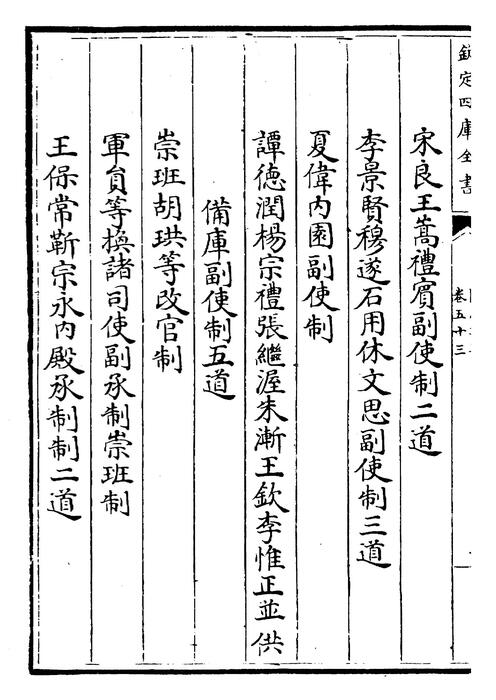 欽定四庫全書
卷五十三
宋良王蒿禮賓副使制二道
李景賢穆遂石用休文思副使制三道
夏偉内園副使制
譚德潤楊宗禮張繼渥朱漸王欽李惟正並供
備庫副使制五道
崇班胡珙等改官制
軍員等換諸司使副承制崇班制
王保常靳宗永内殿承制制二道